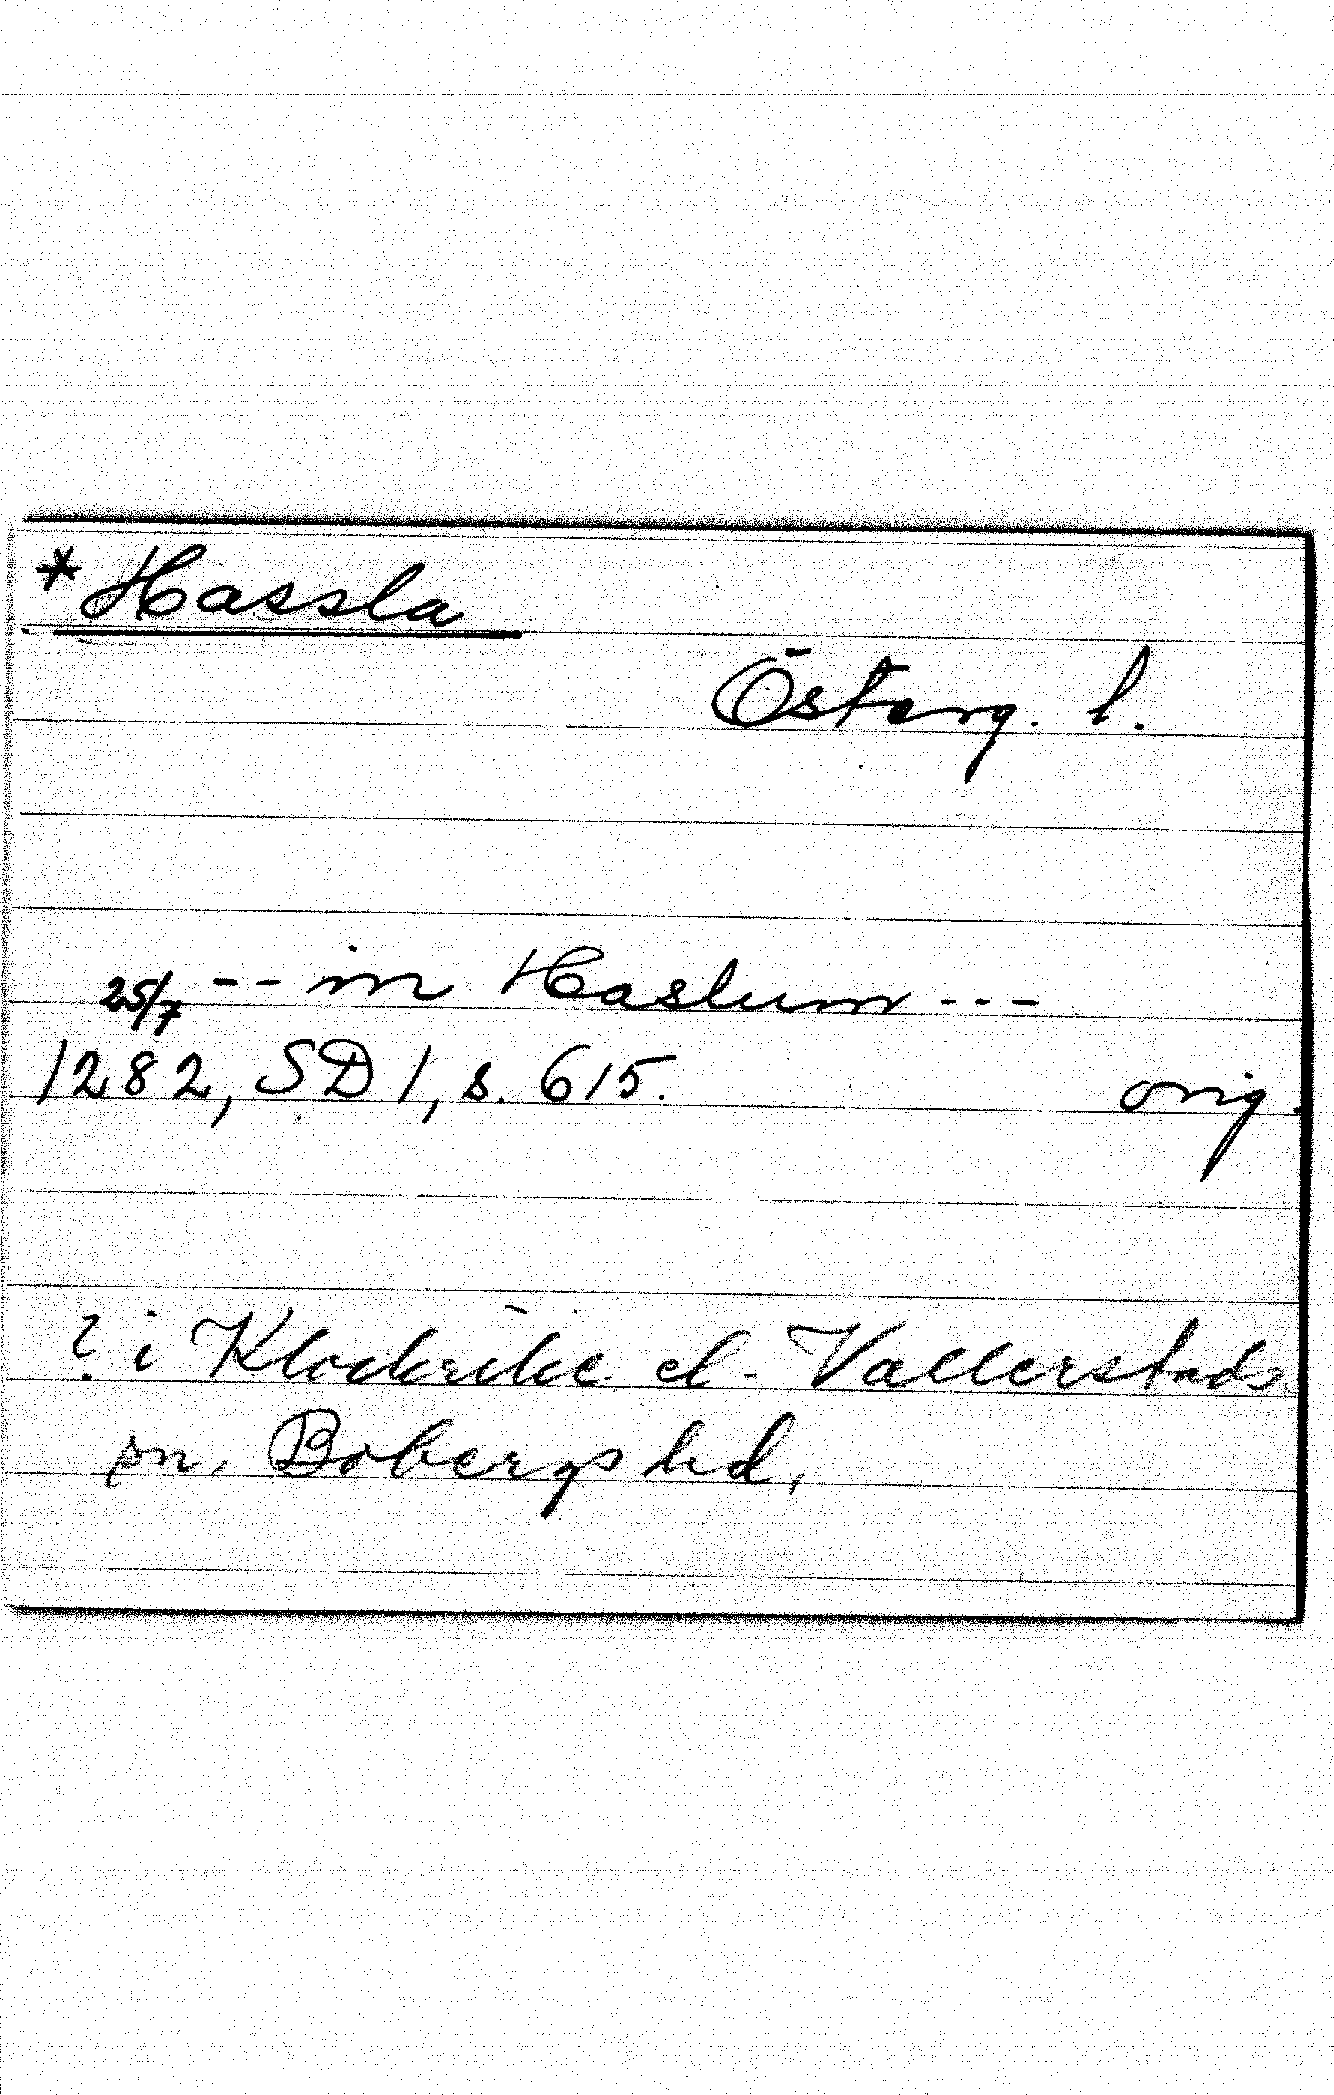 *Hassla
Österg. l.
25/7 -- in Haslum ---
1282, SD 1, s. 615. orig.
? i Klockrike el. Vallerstads
sn, Bobergs hd,